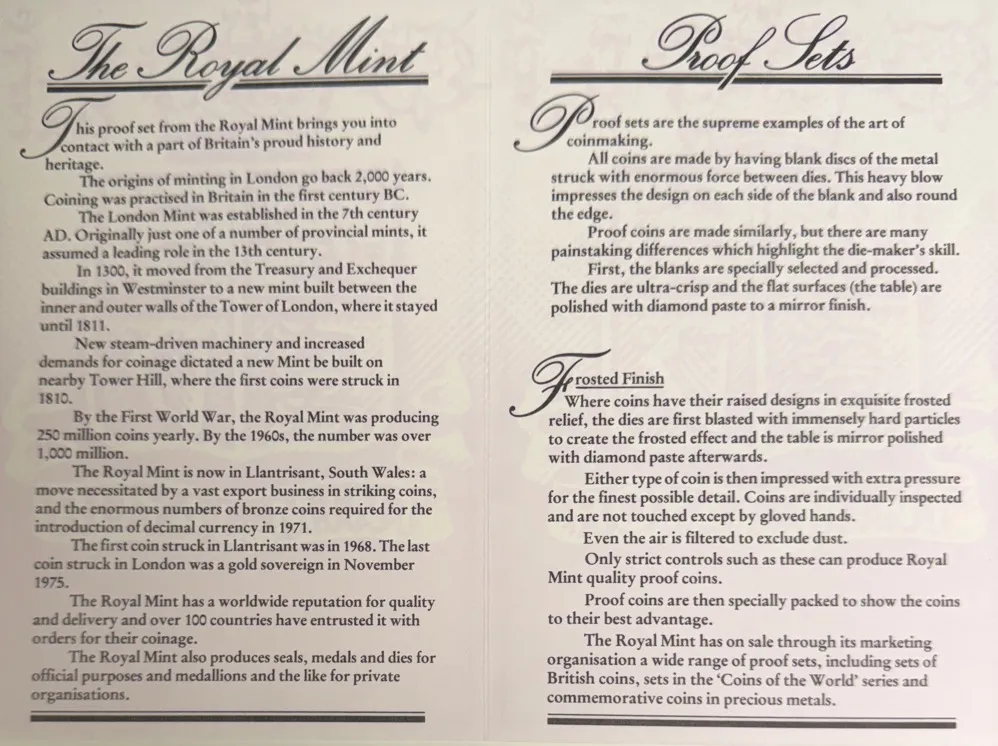 The Royal Mint
This proof set from the Royal Mint brings you into
contact with a part of Britain's proud history and
heritage.
The origins of minting in London go back 2,000 years.
Coining was practised in Britain in the first century BC.
The London Mint was established in the 7th century
AD. Originally just one of a number of provincial mints, it
assumed a leading role in the 13th century.
In 1300, it moved from the Treasury and Exchequer
buildings in Westminster to a new mint built between the
inner and outer walls of the Tower of London, where it stayed
until 1811.
New steam-driven machinery and increased
demands for coinage dictated a new Mint be built on
nearby Tower Hill, where the first coins were struck in
1810.
By the First World War, the Royal Mint was producing
250 million coins yearly. By the 1960s, the number was over
1,000 million.
The Royal Mint is now in Llantrisant, South Wales: a
move necessitated by a vast export business in striking coins,
and the enormous numbers of bronze coins required for the
introduction of decimal currency in 1971.
The first coin struck in Llantrisant was in 1968. The last
coin struck in London was a gold sovereign in November
1975.
The Royal Mint has a worldwide reputation for quality
and delivery and over 100 countries have entrusted it with
orders for their coinage.
The Royal Mint also produces seals, medals and dies for
official purposes and medallions and the like for private
organisations.
Proof Sets
Proof sets are the supreme examples of the art of
coinmaking.
All coins are made by having blank discs of the metal
struck with enormous force between dies. This heavy blow
impresses the design on each side of the blank and also round
the edge.
Proof coins are made similarly, but there are many
painstaking differences which highlight the die-maker's skill.
First, the blanks are specially selected and processed.
The dies are ultra-crisp and the flat surfaces (the table) are
polished with diamond paste to a mirror finish.
Frosted Finish
Where coins have their raised designs in exquisite frosted
relief, the dies are first blasted with immensely hard particles
to create the frosted effect and the table is mirror polished
with diamond paste afterwards.
Either type of coin is then impressed with extra pressure
for the finest possible detail. Coins are individually inspected
and are not touched except by gloved hands.
Even the air is filtered to exclude dust.
Only strict controls such as these can produce Royal
Mint quality proof coins.
Proof coins are then specially packed to show the coins
to their best advantage.
The Royal Mint has on sale through its marketing
organisation a wide range of proof sets, including sets of
British coins, sets in the 'Coins of the World' series and
commemorative coins in precious metals.